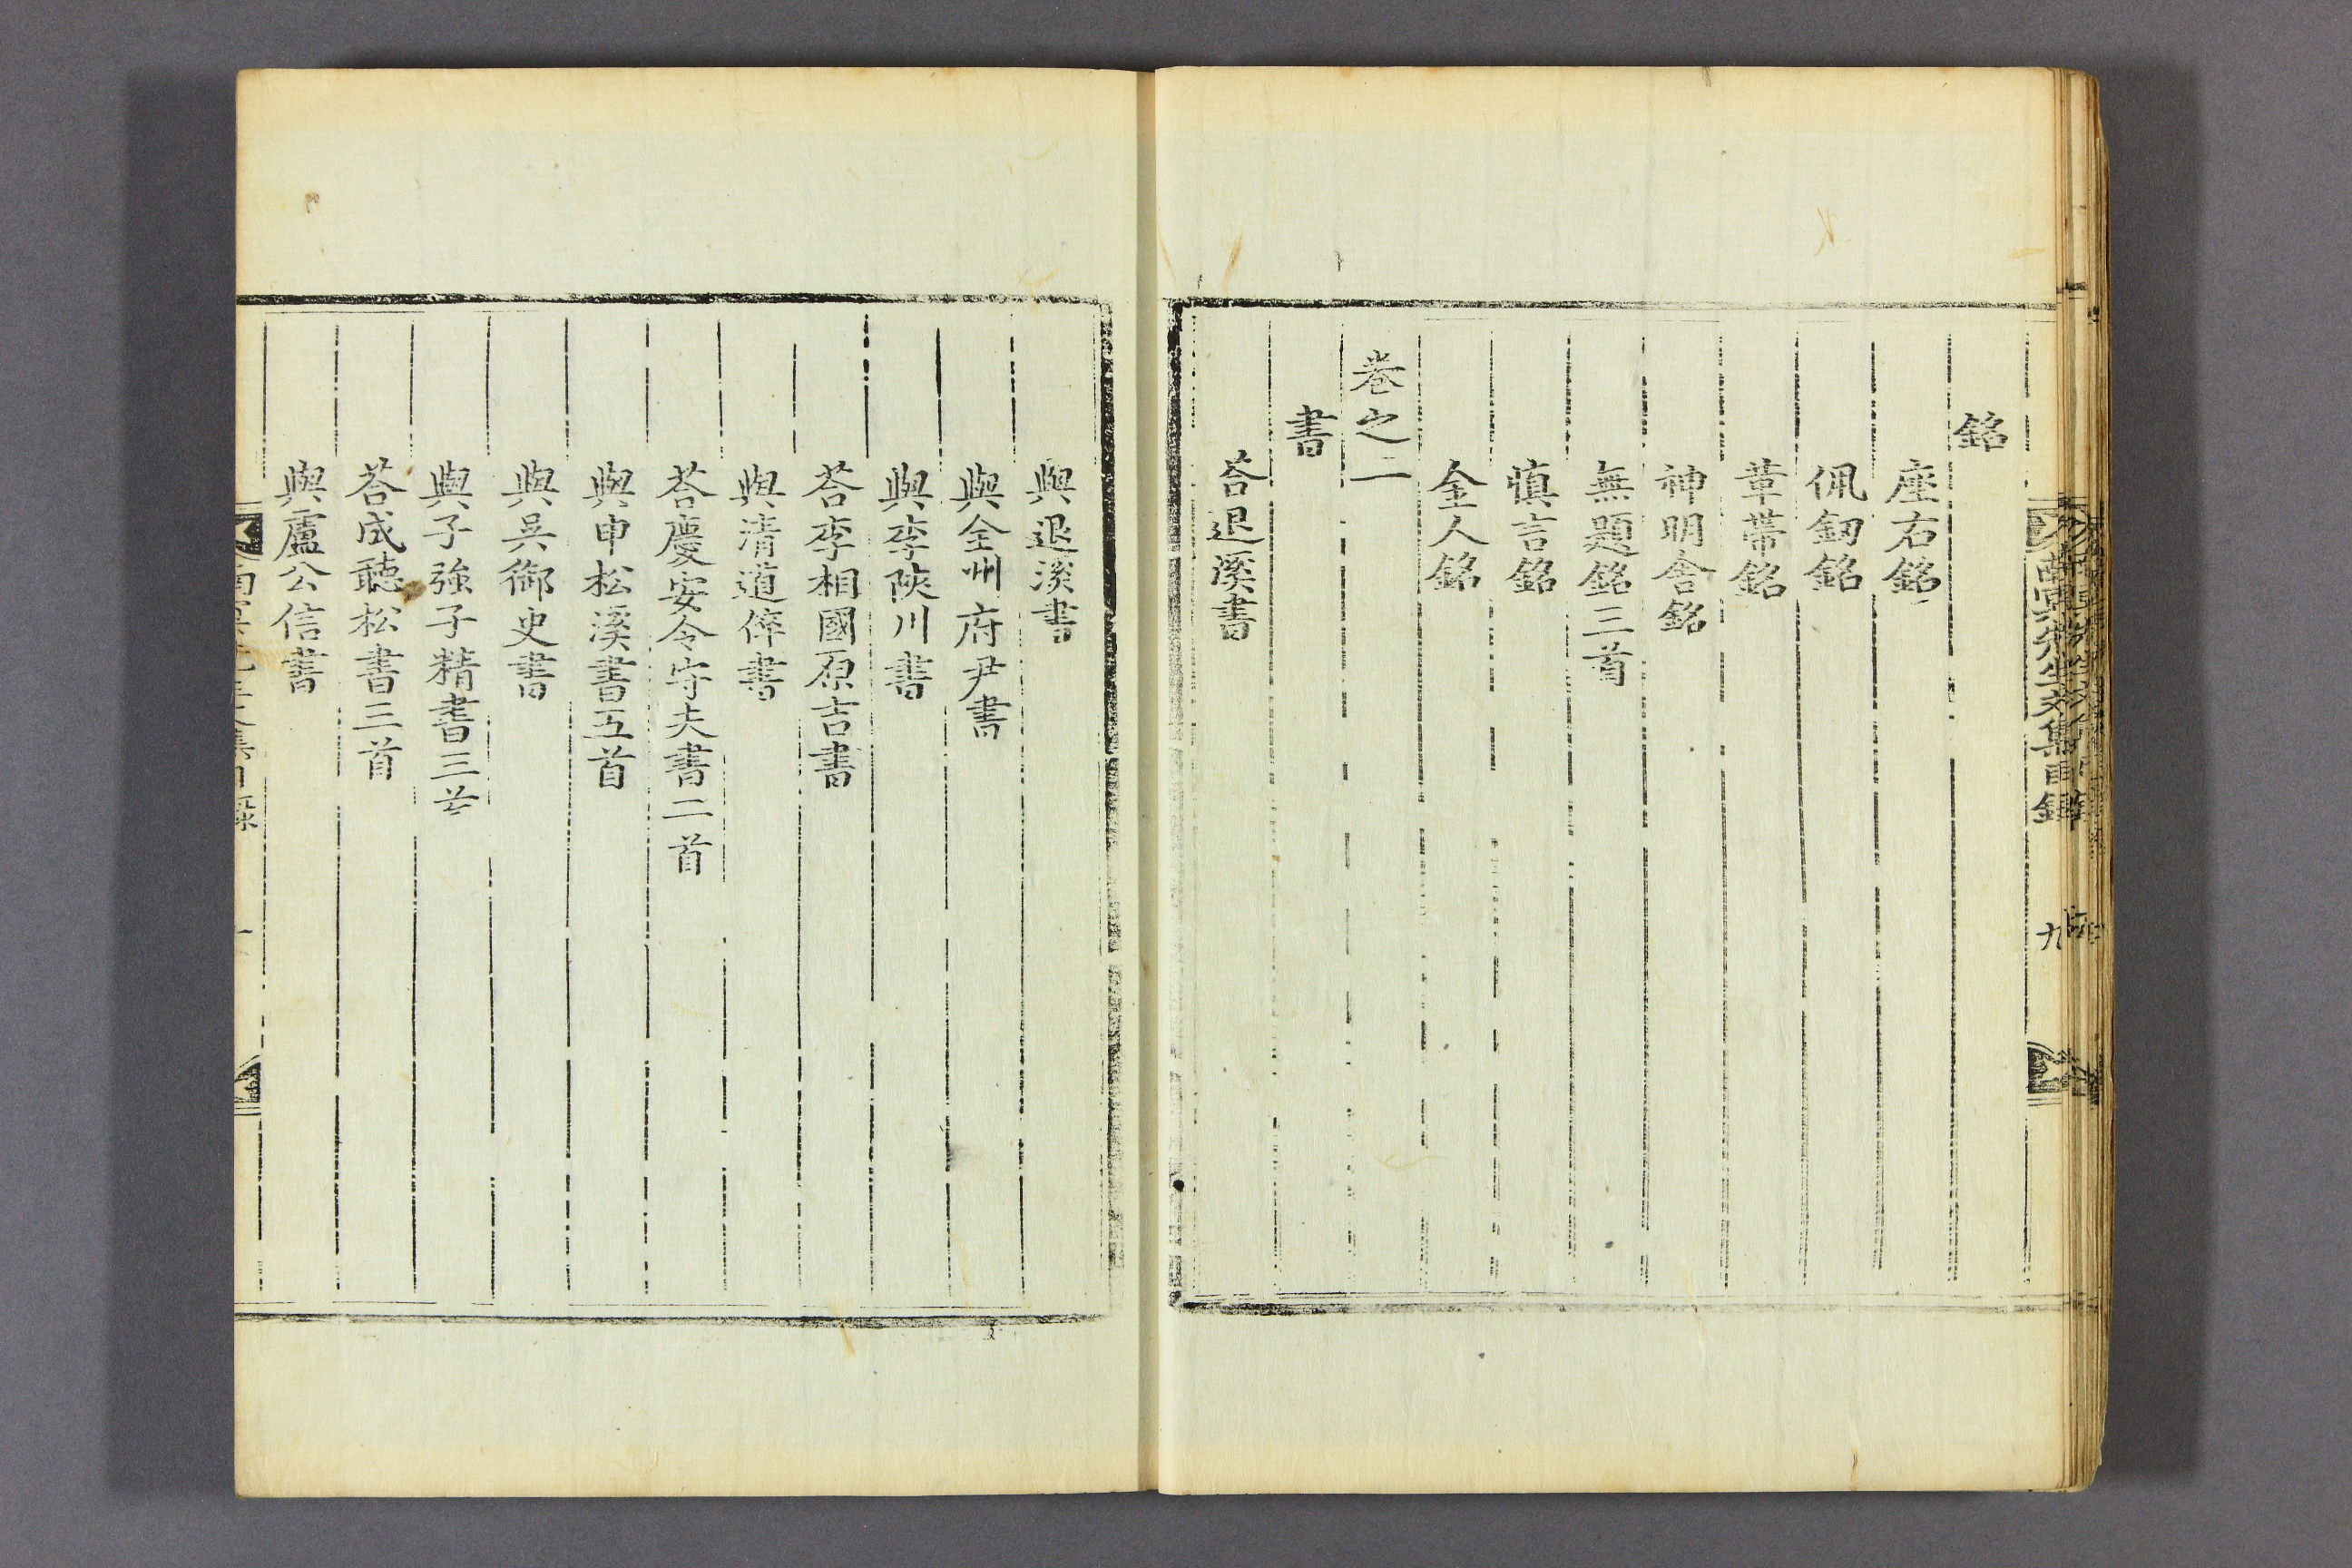 銘
座右銘
佩釰銘
革帶銘
神明舍銘
無題銘三首
愼言銘
金人銘
卷之二
書
荅退溪書
與退溪書
與全州府尹書
與李陜川書
荅李相國原吉書
與淸道倅書
荅慶安令守夫書二首
與申松溪書五首
與吳御史書
與子強子精書三首
荅成聽松書三首
與盧公信書
南冥先生文集目錄
九